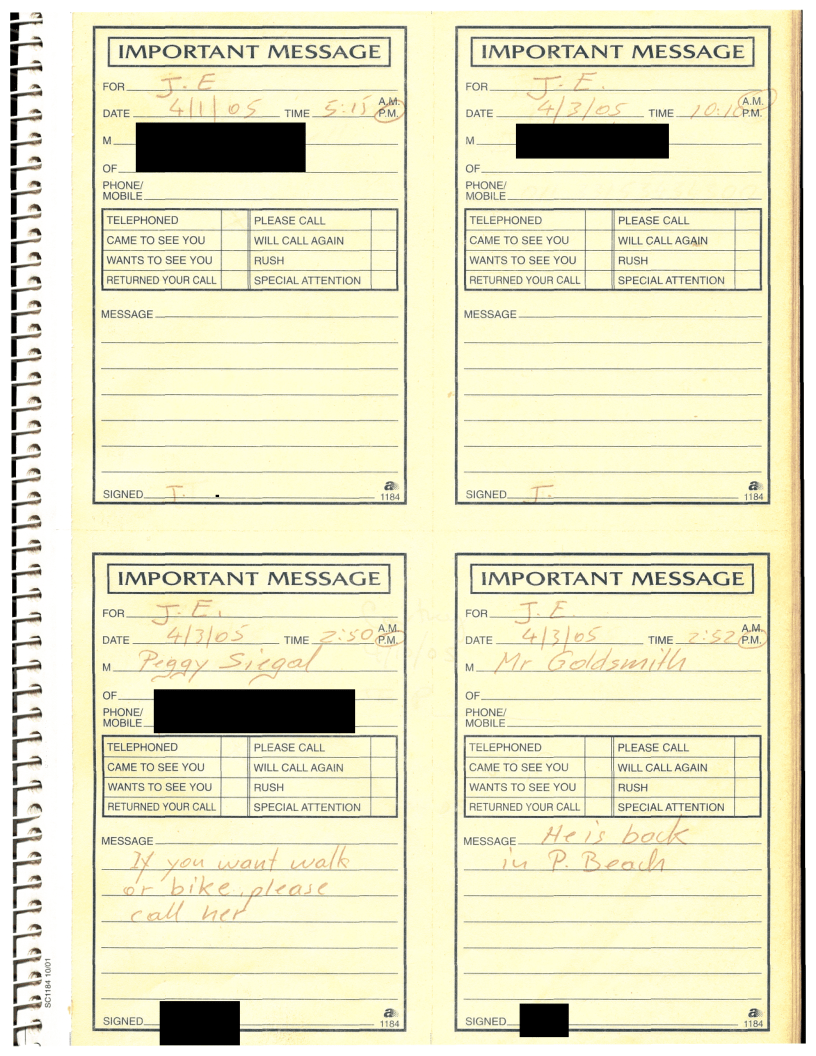 IMPORTANT MESSAGE
FOR J. E
DATE 4/1/05 TIME 5:15 A.M. P.M.
M
OF
PHONE/
MOBILE
TELEPHONED PLEASE CALL
CAME TO SEE YOU WILL CALL AGAIN
WANTS TO SEE YOU RUSH
RETURNED YOUR CALL SPECIAL ATTENTION
MESSAGE
SIGNED J.
a
1184
IMPORTANT MESSAGE
FOR J. E.
DATE 4/3/05 TIME 10:10 A.M. P.M.
M
OF
PHONE/
MOBILE
TELEPHONED PLEASE CALL
CAME TO SEE YOU WILL CALL AGAIN
WANTS TO SEE YOU RUSH
RETURNED YOUR CALL SPECIAL ATTENTION
MESSAGE
SIGNED J.
a
1184
IMPORTANT MESSAGE
FOR J. E.
DATE 4/3/05 TIME 2:50 A.M. P.M.
M Peggy Siegal
OF
PHONE/
MOBILE
TELEPHONED PLEASE CALL
CAME TO SEE YOU WILL CALL AGAIN
WANTS TO SEE YOU RUSH
RETURNED YOUR CALL SPECIAL ATTENTION
MESSAGE
If you want walk
or bike, please
call her
SIGNED
a
1184
IMPORTANT MESSAGE
FOR J. E.
DATE 4/3/05 TIME 2:52 A.M. P.M.
M Mr Goldsmith
OF
PHONE/
MOBILE
TELEPHONED PLEASE CALL
CAME TO SEE YOU WILL CALL AGAIN
WANTS TO SEE YOU RUSH
RETURNED YOUR CALL SPECIAL ATTENTION
MESSAGE He is back
in P. Beach
SIGNED
a
1184
SC1184 10/01